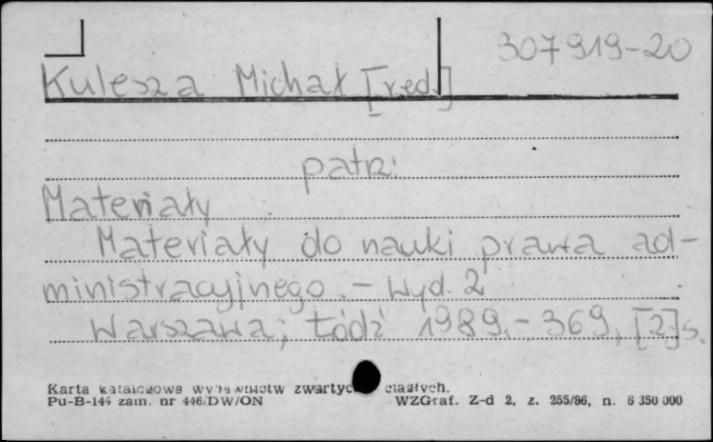 307919-20
Kulesza Michał [red.]
patrz:
Materiały
Materiały do nauki prawa ad-
ministracyjnego. - Wyd. 2
Warszawa; Łódź 1989. - 369, [2] s.
Karta katalogowa wydawnictw zwartych ciągłych.
Pu-B-144 zam. nr 446/DW/ON WZGraf. Z-d 2, z. 255/86, n. 6 350 000